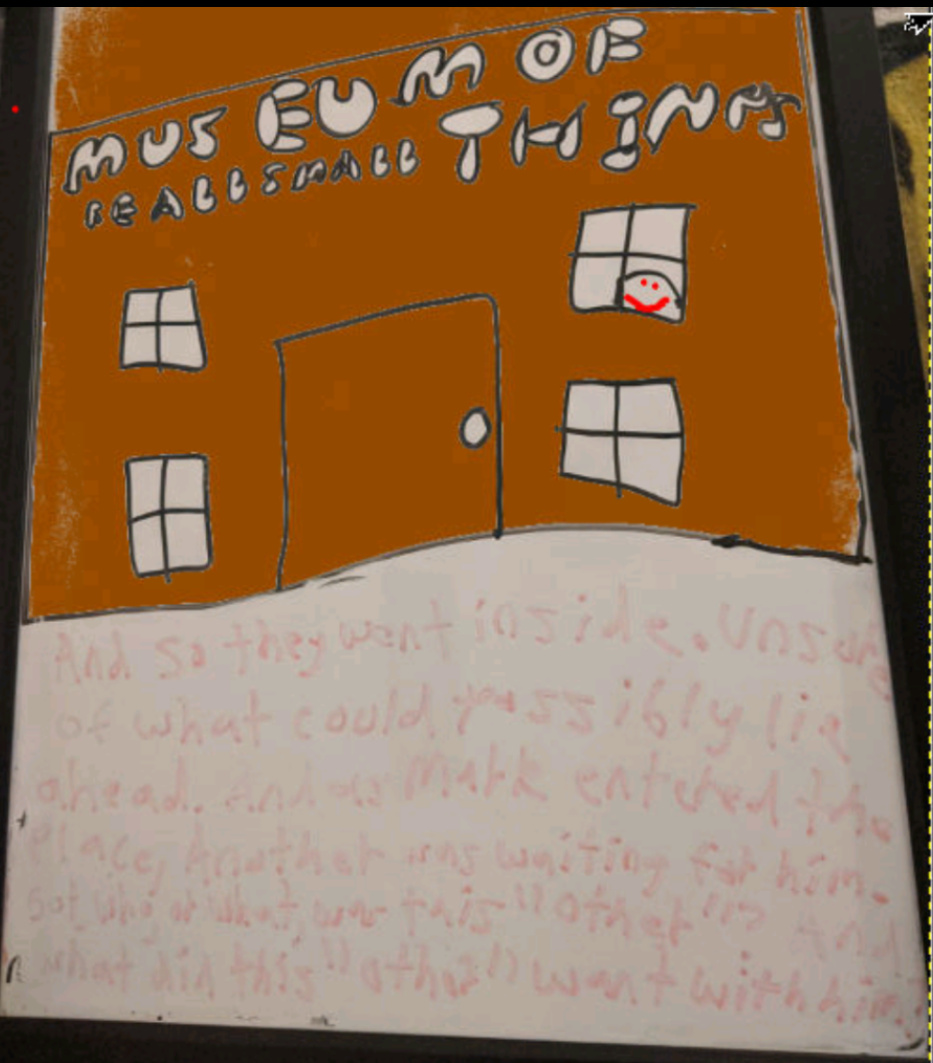 MUSEUM OF
REALL SMALL THINGS
And so they went inside. Unsure
of what could possibly lie
ahead. And as Mark entered the
place, Another was waiting for him.
But who, or what, was this "other"? And
what did this "other" want with him.